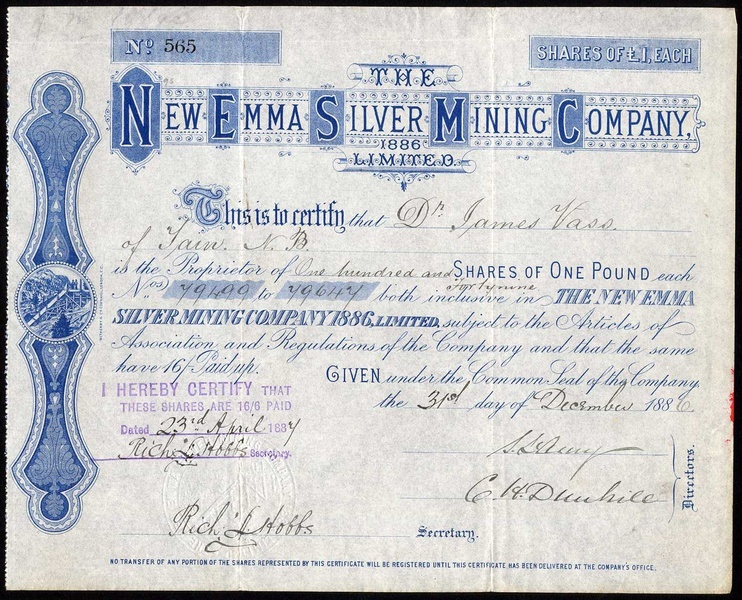 No 565
SHARES OF £1, EACH
THE
NEW EMMA SILVER MINING COMPANY,
1886
LIMITED.
This is to certify that Dr. James Vass.
of Tain. N. B.
is the Proprietor of One hundred and SHARES OF ONE POUND each
Forty nine
Nos) 79499 to 79647 both inclusive in THE NEW EMMA
SILVER MINING COMPANY 1886, LIMITED, subject to the Articles of
Association and Regulations of the Company and that the same
have 16/- Paid up.
GIVEN under the Common Seal of the Company
the 31st day of December 1886.
I HEREBY CERTIFY THAT
THESE SHARES ARE 16/6 PAID
Dated 23rd April 1887
Richd L Hobbs Secretary.
C. H. Dunhill
Directors.
Richd L Hobbs
Secretary.
NO TRANSFER OF ANY PORTION OF THE SHARES REPRESENTED BY THIS CERTIFICATE WILL BE REGISTERED UNTIL THIS CERTIFICATE HAS BEEN DELIVERED AT THE COMPANY'S OFFICE.